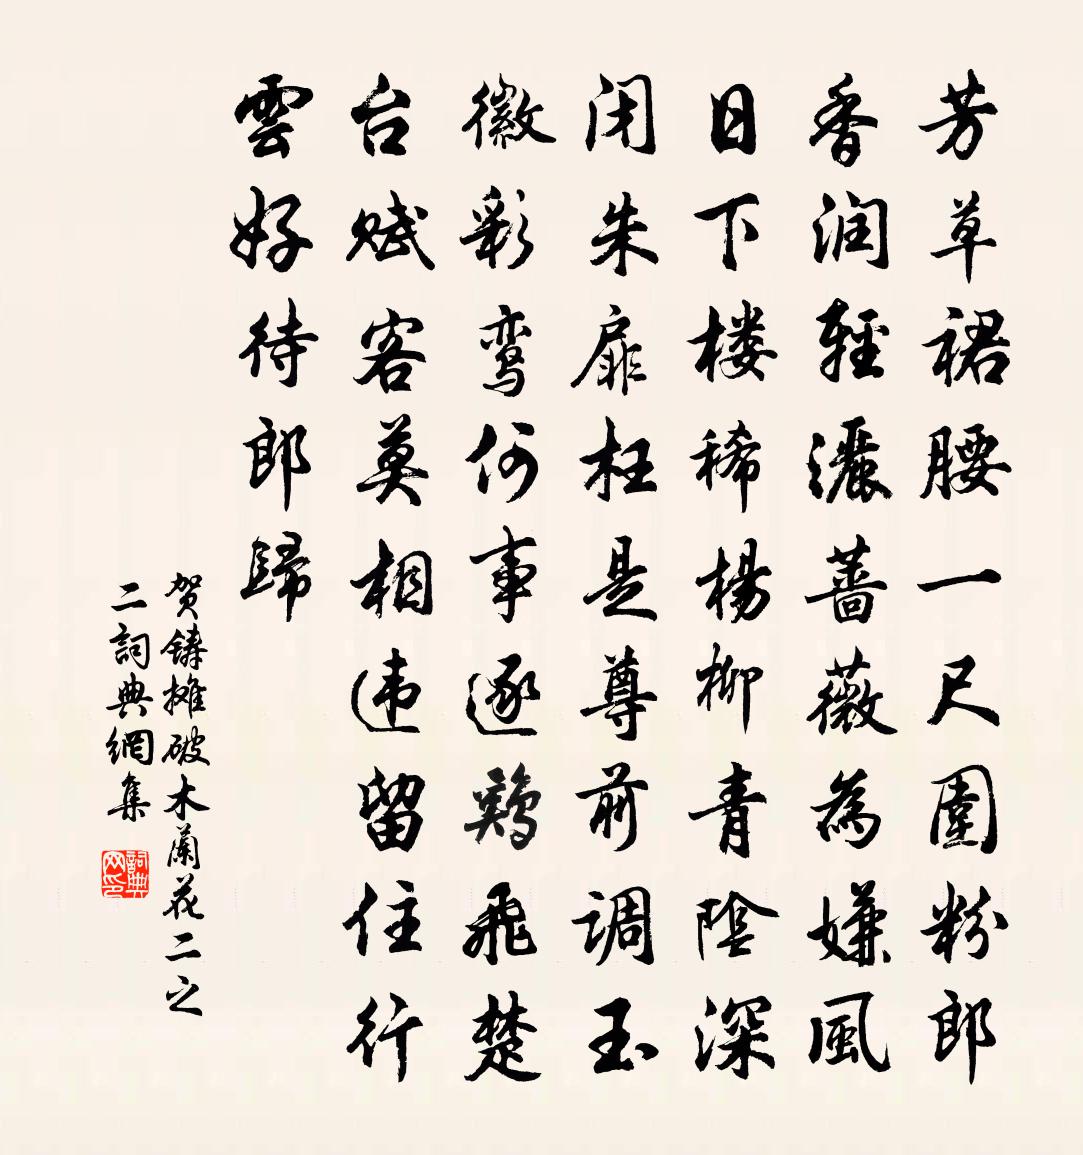 芳草裙腰一尺圍粉郎
香润輕灑蔷薇為嫌風
日下楼稀楊柳青陰深
闭朱扉枉是尊前调玉
徽彩鸾何事逐鸡飛楚
台赋客莫相违留住行
雲好待郎歸
贺鑄摊破木蘭花二之
二詞典網集
詞典网印